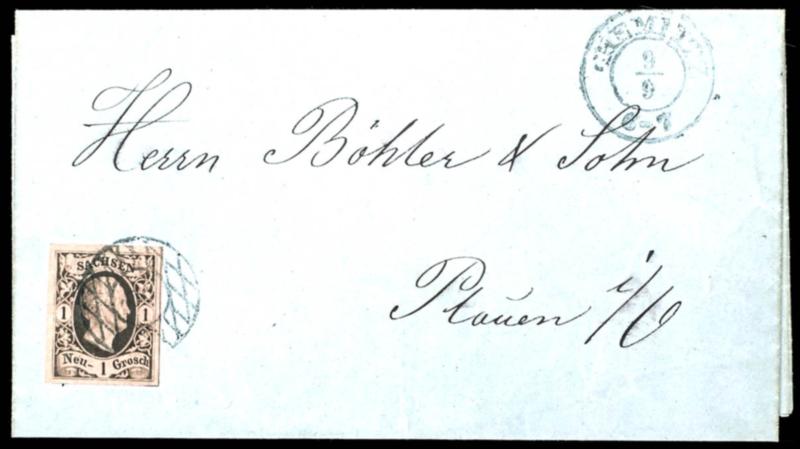 CHEMNITZ
9
9
6-7
Herrn Böhler & Sohn
Plauen i/V
SACHSEN
1 1
Neu- 1 Grosch